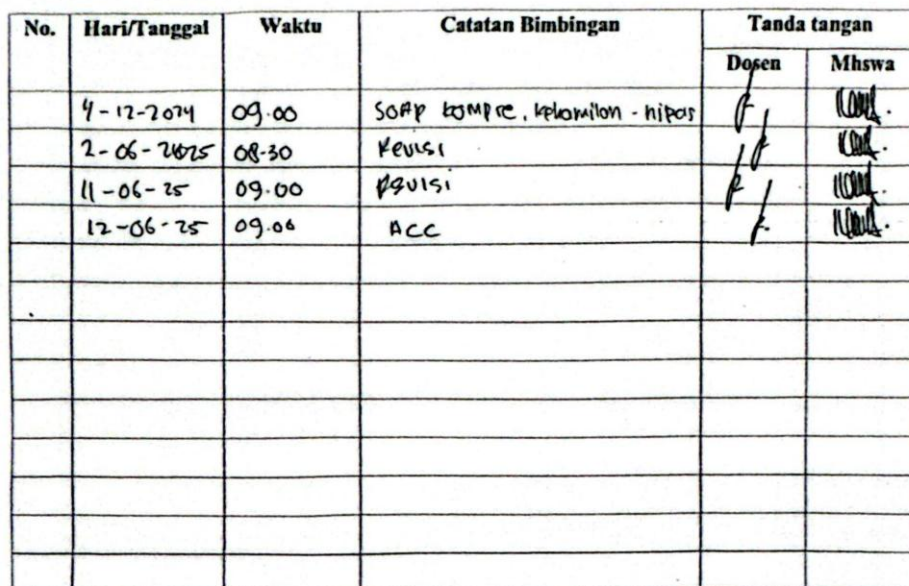 No. Hari/Tanggal Waktu Catatan Bimbingan Tanda tangan
Dosen Mhswa
4-12-2024 09.00 SOAP kompre, kehamilan - nifas
2-06-2025 08-30 Revisi
11-06-25 09.00 Revisi
12-06-25 09.00 ACC